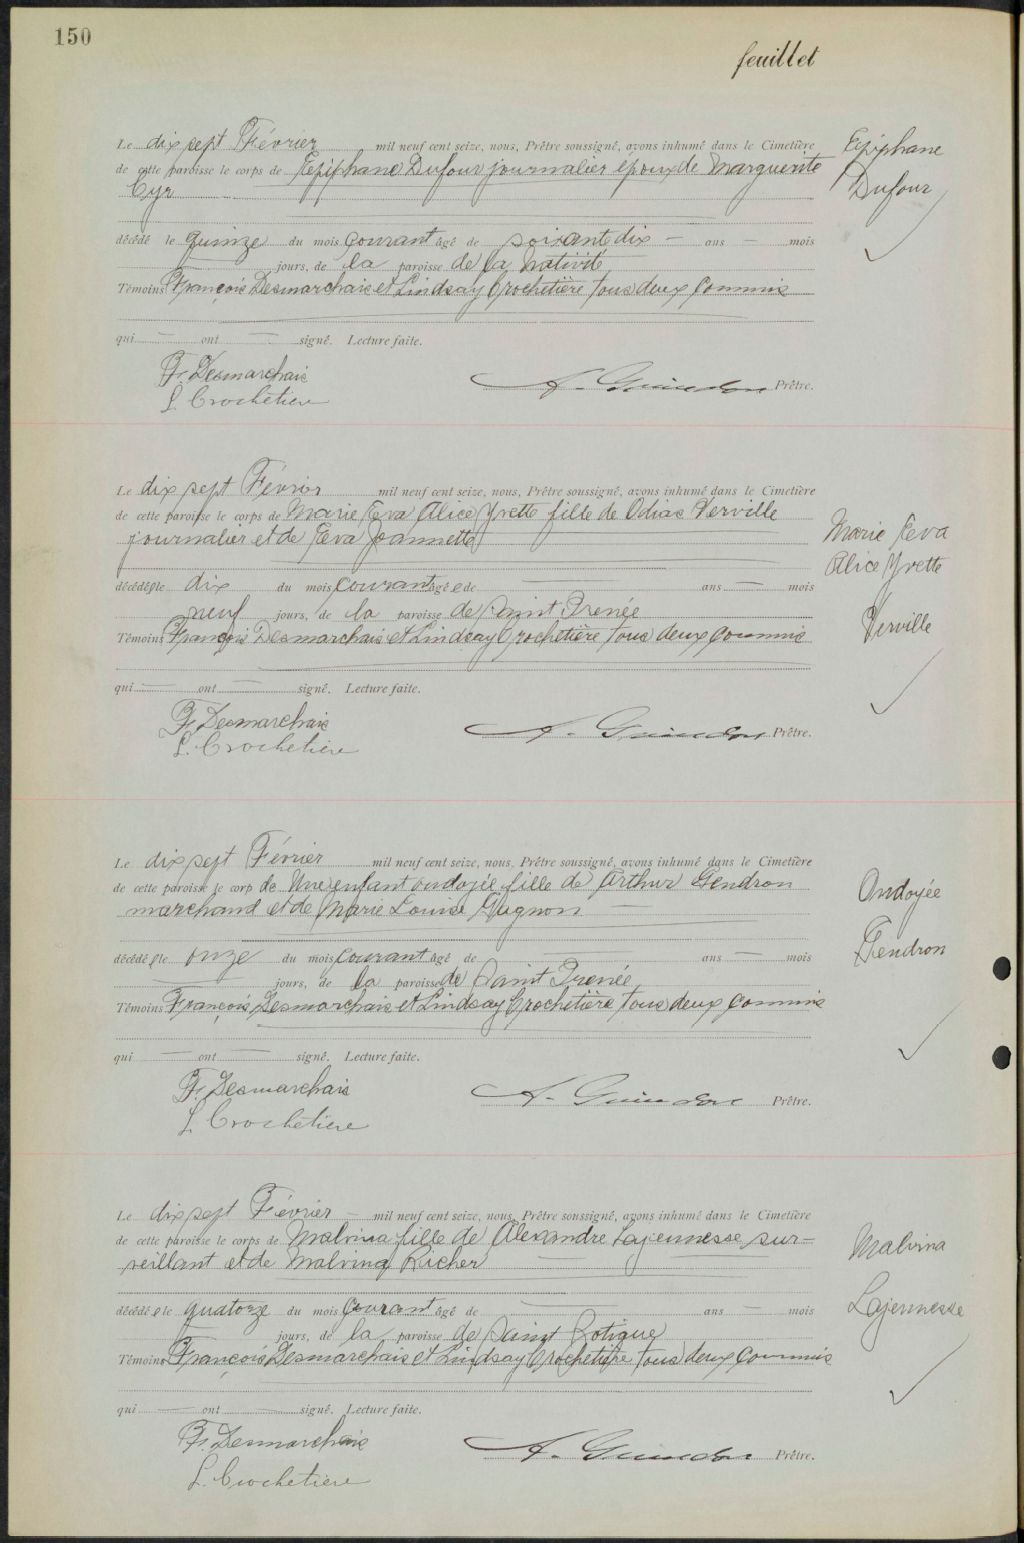 150
feuillet
Le dix sept Février mil neuf cent seize, nous, Prêtre soussigné, avons inhumé dans le Cimetière
de cette paroisse le corps de Epiphane Dufour journalier époux de Marguerite
Cyr
décédé le quinze du mois courant âgé de soixante dix — ans — mois
jours, de la paroisse de la Nativité
Témoins François Desmarchais et Lindsay Crochetière tous deux commis
qui — ont — signé. Lecture faite.
F. Desmarchais
L. Crochetiere
A. Guindon Prêtre.
Epiphane
Dufour
Le dix sept Février mil neuf cent seize, nous, Prêtre soussigné, avons inhumé dans le Cimetière
de cette paroisse le corps de Marie Eva Alice Yvette fille de Odias Verville
journalier et de Eva Joannette
décédée le dix du mois courant âgée de — ans — mois
neuf jours, de la paroisse de Saint Irenée
Témoins François Desmarchais et Lindsay Crochetière tous deux commis
qui — ont — signé. Lecture faite.
F. Desmarchais
L. Crochetiere
A. Guindon Prêtre.
Marie Eva
Alice Yvette
Verville
Le dix sept Février mil neuf cent seize, nous, Prêtre soussigné, avons inhumé dans le Cimetière
de cette paroisse le corp de Une enfant ondoyée fille de Arthur Gendron
marchand et de Marie Louise Gugnon —
décédée le onze du mois courant âgé de — ans — mois
— jours, de la paroisse de Saint Irenée
Témoins François Desmarchais et Lindsay Crochetière tous deux commis
qui — ont — signé. Lecture faite.
F. Desmarchais
L. Crochetiere
A. Guindon Prêtre.
Ondoyée
Gendron
Le dix sept Février — mil neuf cent seize, nous, Prêtre soussigné, avons inhumé dans le Cimetière
de cette paroisse le corps de Malvina fille de Alexandre Lajeunesse sur-
veillant et de Malvina Richer —
décédée le quatorze du mois courant âgé de — ans — mois
jours, de la paroisse de Saint Zotique
Témoins François Desmarchais et Lindsay Crochetière tous deux commis
qui — ont — signé. Lecture faite.
F. Desmarchais
L. Crochetiere
A. Guindon Prêtre.
Malvina
Lajeunesse